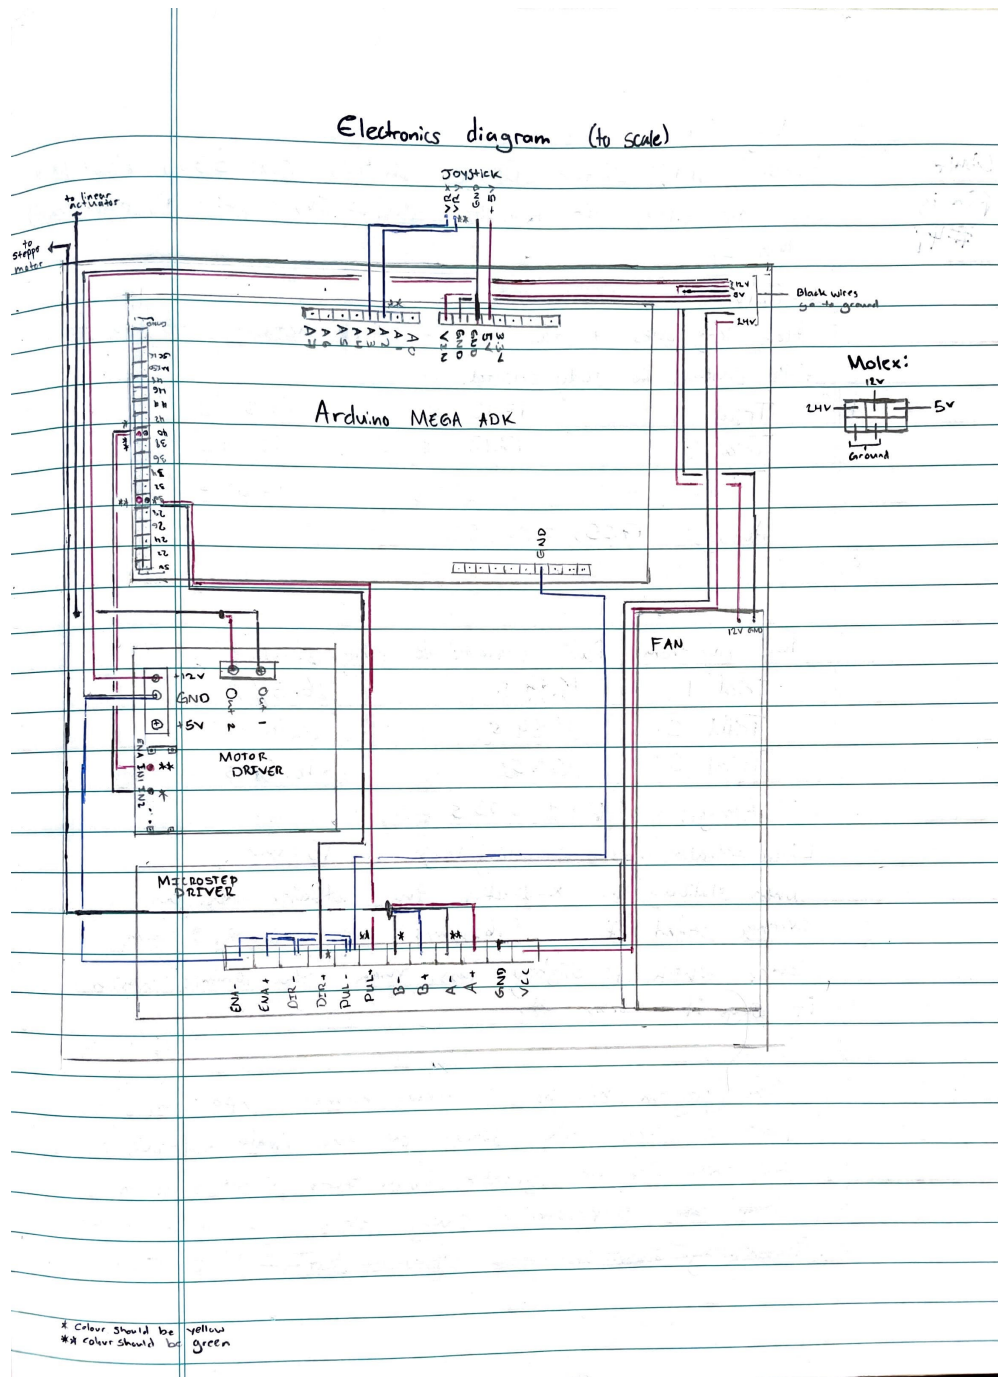 Electronics diagram (to scale)
Joystick
VRX
VRY
**
GND
+5V
to linear
actuator
to
steppe
motor
12V
0V
24V
Black wires
go to ground
**
A7
A6
A5
A4
A3
A2
A1
A0
VIN
GND
GND
5V
3.3V
Molex:
12V
24V
5V
Ground
Arduino MEGA ADK
GND
46
44
42
*
40
**
38
36
34
32
**
30
28
26
24
22
5V
GND
FAN
12V GND
+12V
GND
+5V
Out 2
Out 1
MOTOR
DRIVER
ENA
IN1
**
IN2
*
MICROSTEP
DRIVER
**
*
**
*
ENA-
ENA+
DIR-
DIR+
PUL-
PUL+
B-
B+
A-
A+
GND
VCC
* Colour should be yellow
** colour should be green